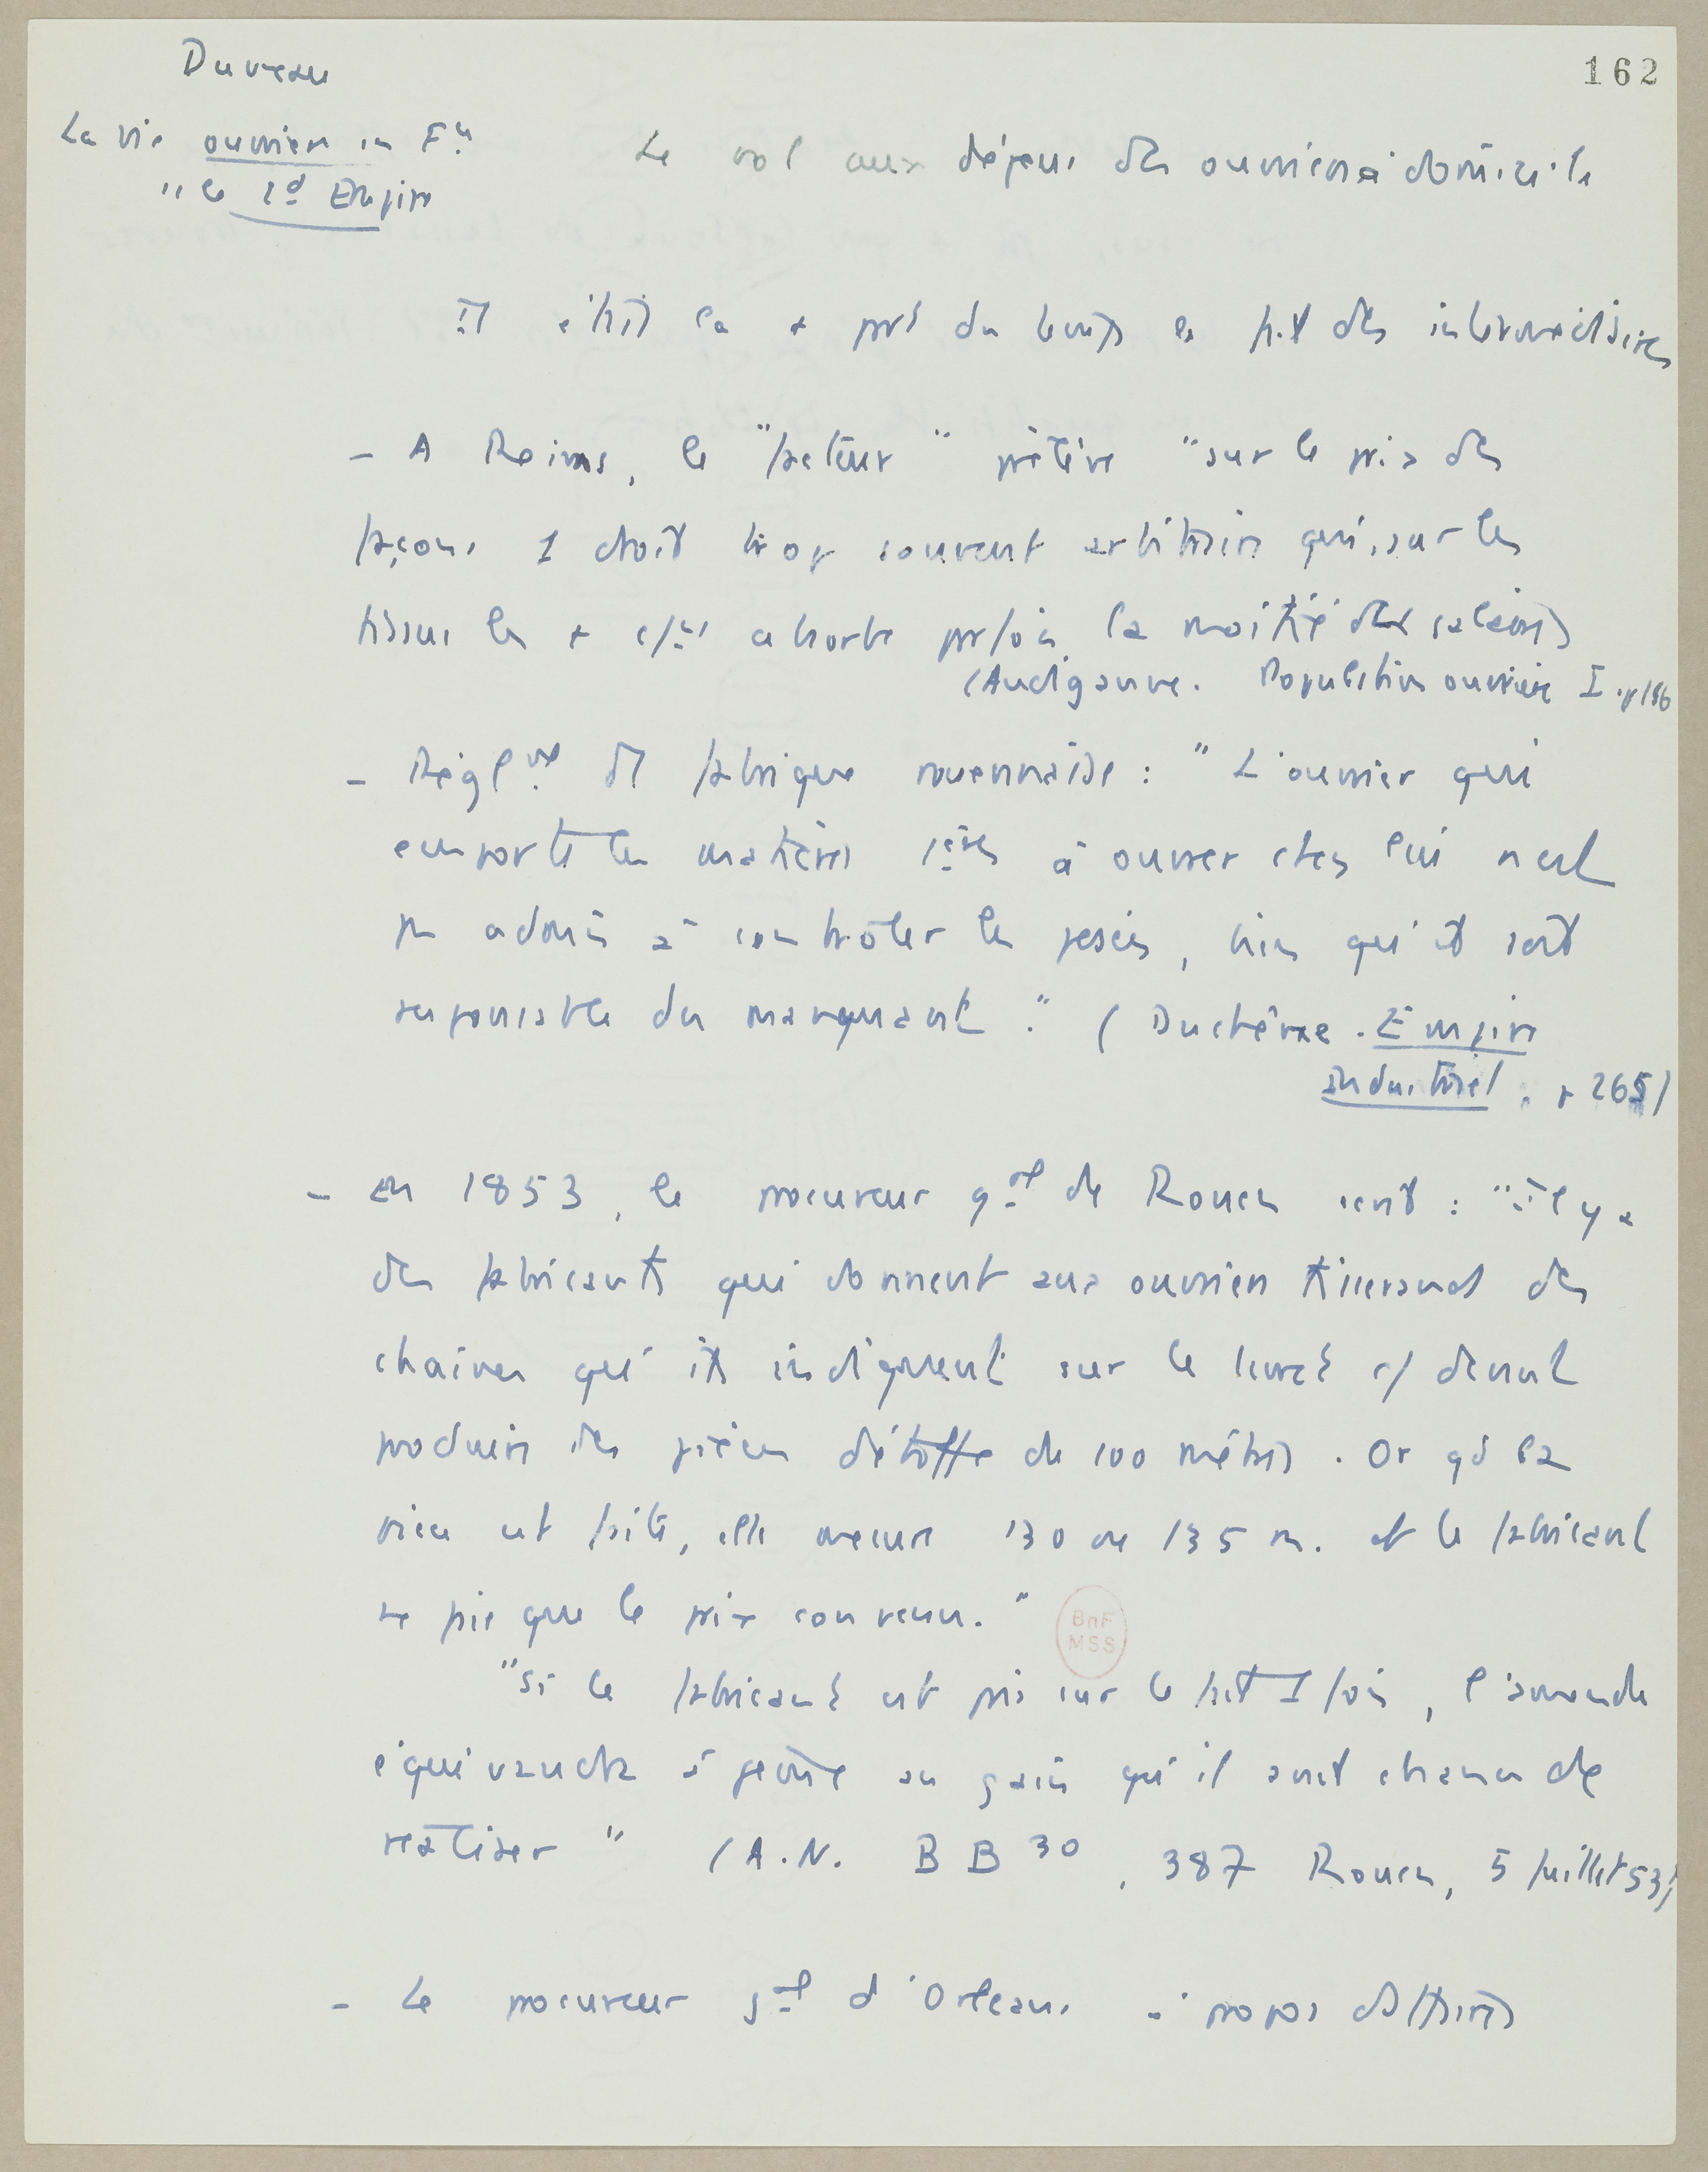 162
Duveau
La vie ouvrière en Fce
ss le 2d Empire
Le vol aux dépens des ouvriers à domicile
Il était la + pt du temps le fait des intermédiaires
- A Reims, le "facteur" prélève "sur le prix des
façons 1 droit trop souvent arbitraire qui, sur les
tissus les + absorbe parfois la moitié des salaires
(Audiganne. Populations ouvrières I. p 186
- Règlmt de fabrique rouennaise : "L'ouvrier qui
emporte les matières 1ères à ouvrer chez lui n'est
pas admis à contrôler les pesées, bien qu'il soit
responsable du manquant." (Duchêne. Empire
industriel. p 265)
- En 1853, le procureur gal de Rouen écrit : "Il y a
des fabricants qui donnent aux ouvriers tisserands des
chaînes qu'ils indiquent sur le livret c/ devant
produire des pièces d'étoffe de 100 mètres. Or qd la
pièce est faite, elle mesure 130 ou 135 m. et le fabricant
ne paie que le prix convenu."
"Si le fabricant est pris sur le fait 1 fois, l'amende
équivaudra à peine au gain qu'il avait chance de
réaliser" (A.N. BB 30, 387 Rouen, 5 Juillet 53)
BnF
MSS
- Le procureur gal d'Orléans à propos d'affaires